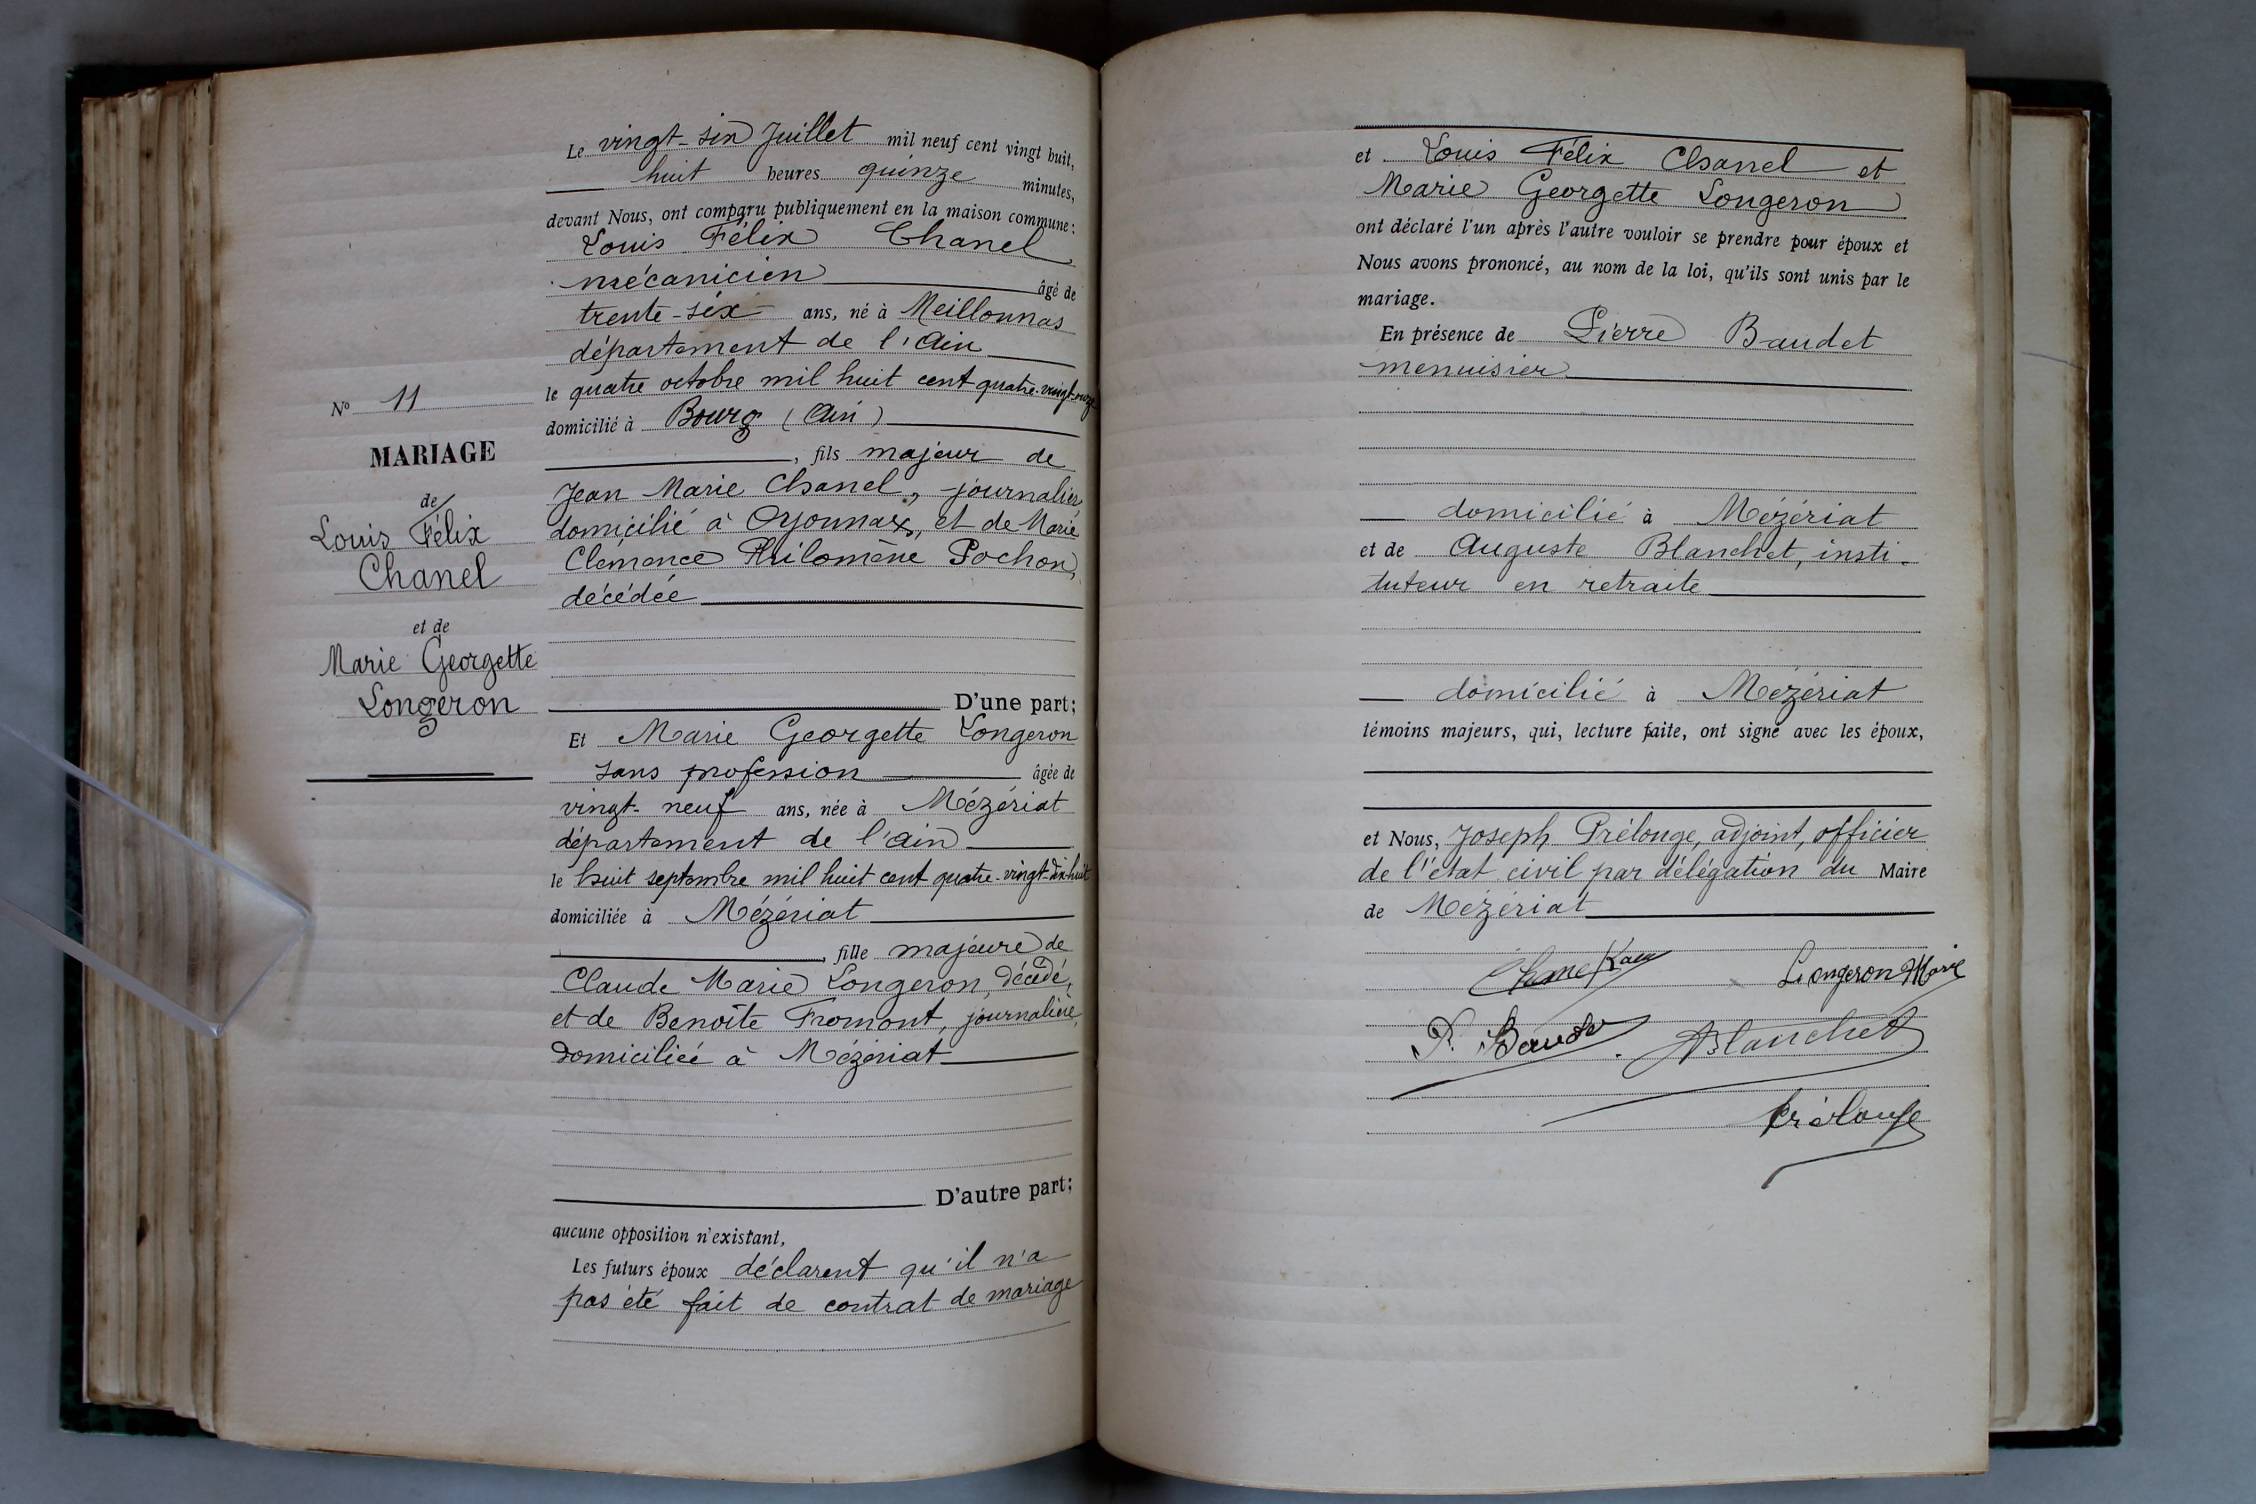 N° 11
MARIAGE
de
Louis Félix
Chanel
et de
Marie Georgette
Longeron
Le vingt-six Juillet mil neuf cent vingt huit,
huit heures quinze minutes,
devant Nous, ont comparu publiquement en la maison commune :
Louis Félix Chanel
mécanicien âgé de
trente-six ans, né à Meillonnas
département de l'Ain
le quatre octobre mil huit cent quatre-vingt-onze
domicilié à Bourg (Ain)
, fils majeur de
Jean Marie Chanel, journalier,
domicilié à Oyonnax, et de Marie
Clémence Philomène Pochon,
décédée
D'une part ;
Et Marie Georgette Longeron
sans profession âgée de
vingt-neuf ans, née à Mézériat
département de l'Ain
le huit septembre mil huit cent quatre-vingt-dix-huit
domiciliée à Mézériat
, fille majeure de
Claude Marie Longeron, décédé,
et de Benoîte Fromont, journalière,
domiciliée à Mézériat
D'autre part ;
aucune opposition n'existant,
Les futurs époux déclarent qu'il n'a
pas été fait de contrat de mariage
et Louis Félix Chanel et
Marie Georgette Longeron
ont déclaré l'un après l'autre vouloir se prendre pour époux et
Nous avons prononcé, au nom de la loi, qu'ils sont unis par le
mariage.
En présence de Pierre Baudet
menuisier
domicilié à Mézériat
et de Auguste Blanchet, insti-
tuteur en retraite
domicilié à Mézériat
témoins majeurs, qui, lecture faite, ont signé avec les époux,
et Nous, Joseph Prélonge, adjoint, officier
de l'état civil par délégation du Maire
de Mézériat
Longeron Marie
P. Baudet
Blanchet
Prélonge